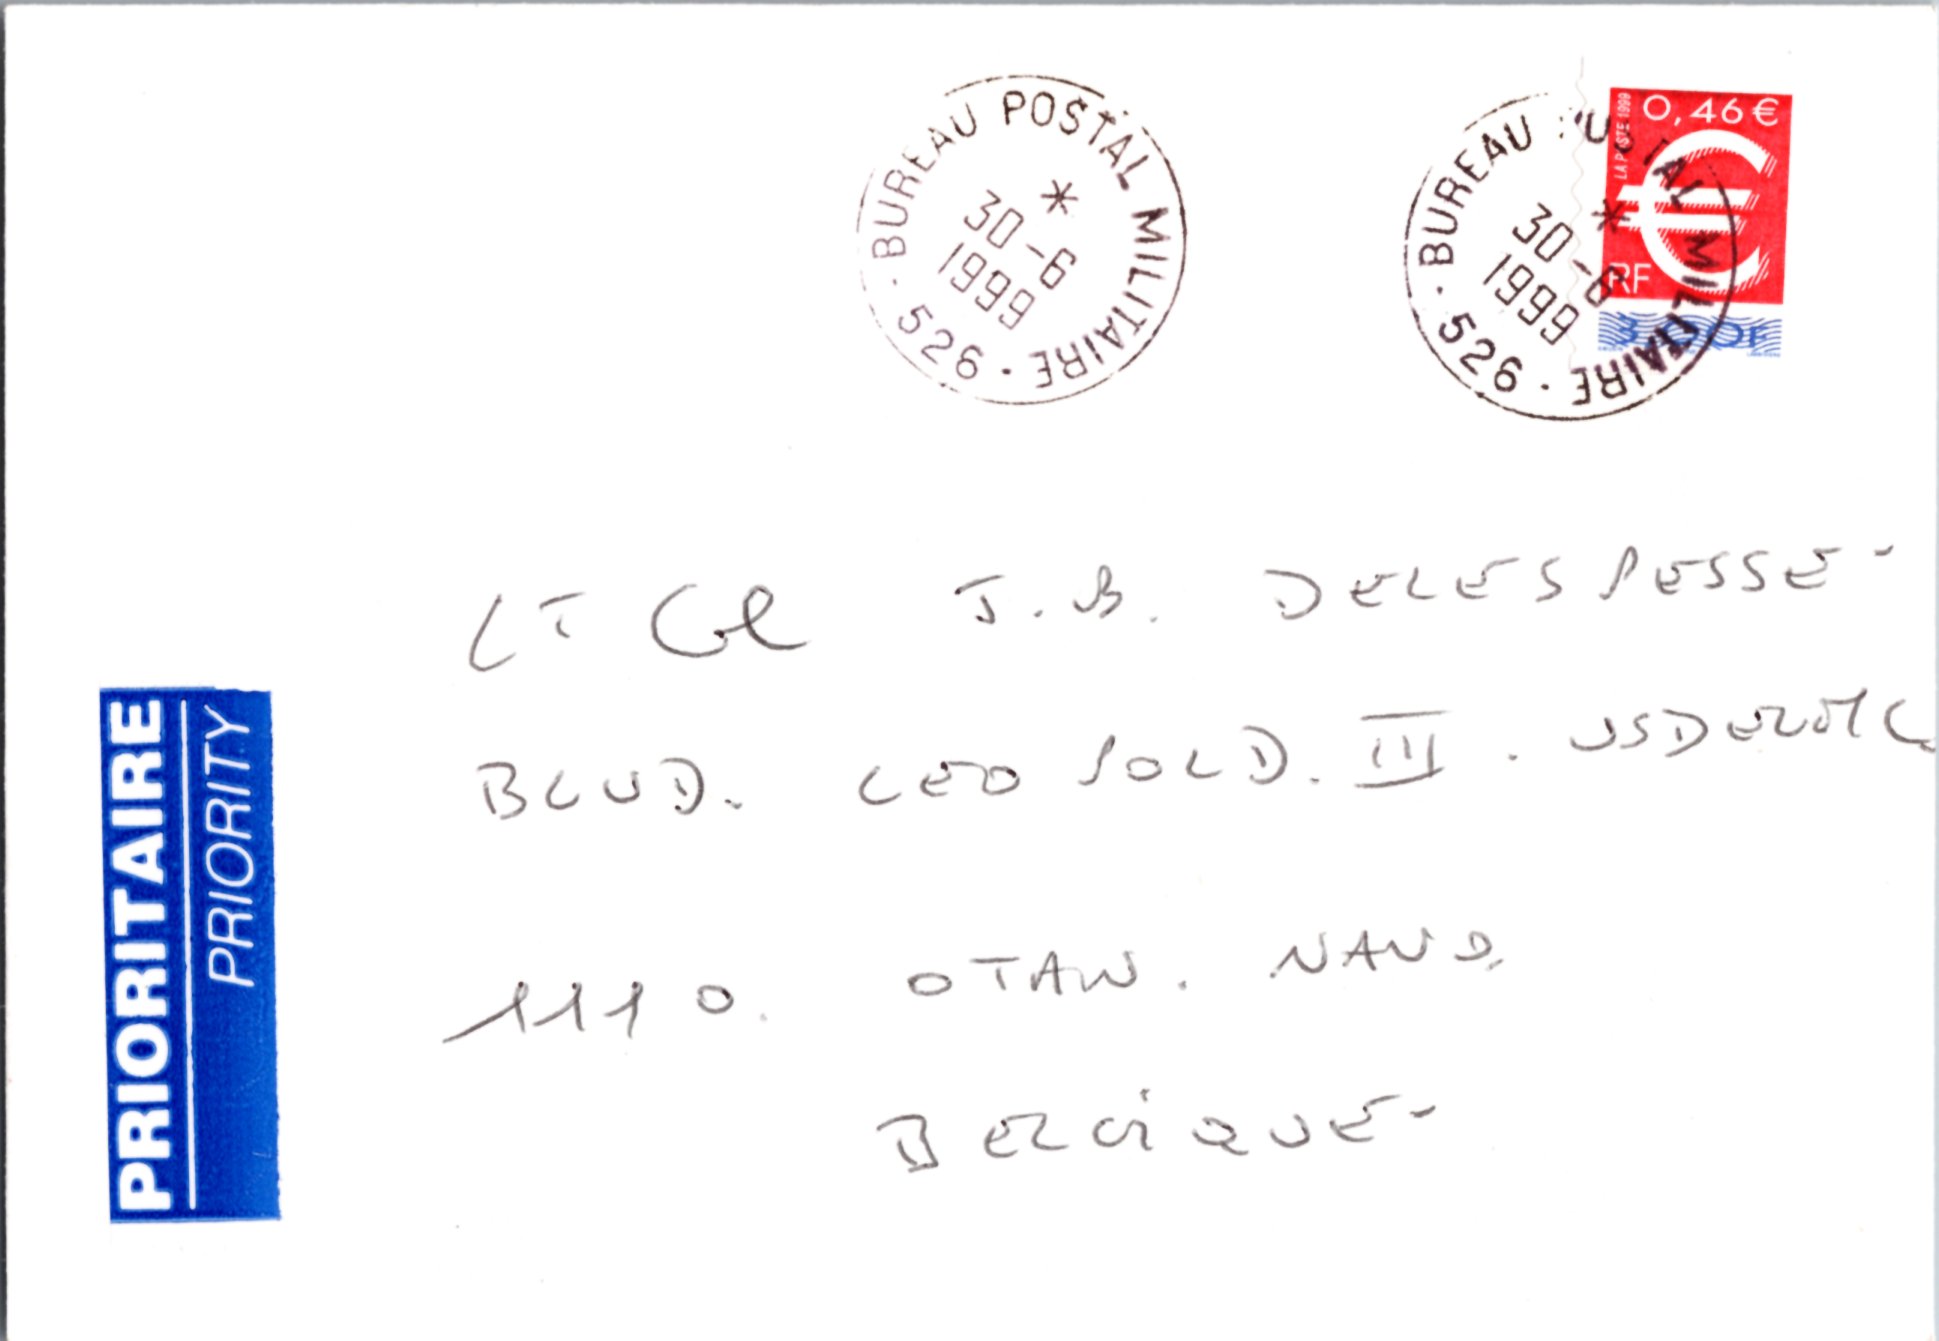 BUREAU POSTAL MILITAIRE
*
30-6
1999
526
BUREAU POSTAL MILITAIRE
*
30-6
1999
526
LA POSTE 1999
0,46 €
€
RF
3,00F
LT Cl J.B. DELESPESSE-
BLVD. LEOPOLD. III.
1110. OTAN.
BELGIQUE-
PRIORITAIRE
PRIORITY